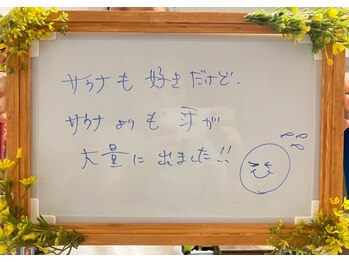 サウナも好きだけど、
サウナよりも汗が
大量に出ました!!